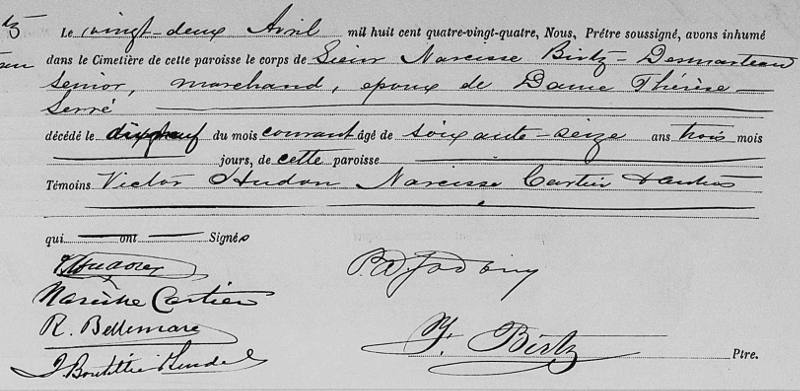 Le vingt-deux Avril mil huit cent quatre-vingt-quatre, Nous, Prêtre soussigné, avons inhumé
dans le Cimetière de cette paroisse le corps de Sieur Narcisse Birtz-Desmarteau
senior, marchand, epoux de Dame Thérèse
Serré
décédé le dixneuf du mois courant âgé de soixante-seize ans trois mois
jours, de cette paroisse
Témoins Victor Hudon Narcisse Cartier & autres
qui ont Signés
VHudon
Narcisse Cartier
R. Bellemare
Birtz Ptre.